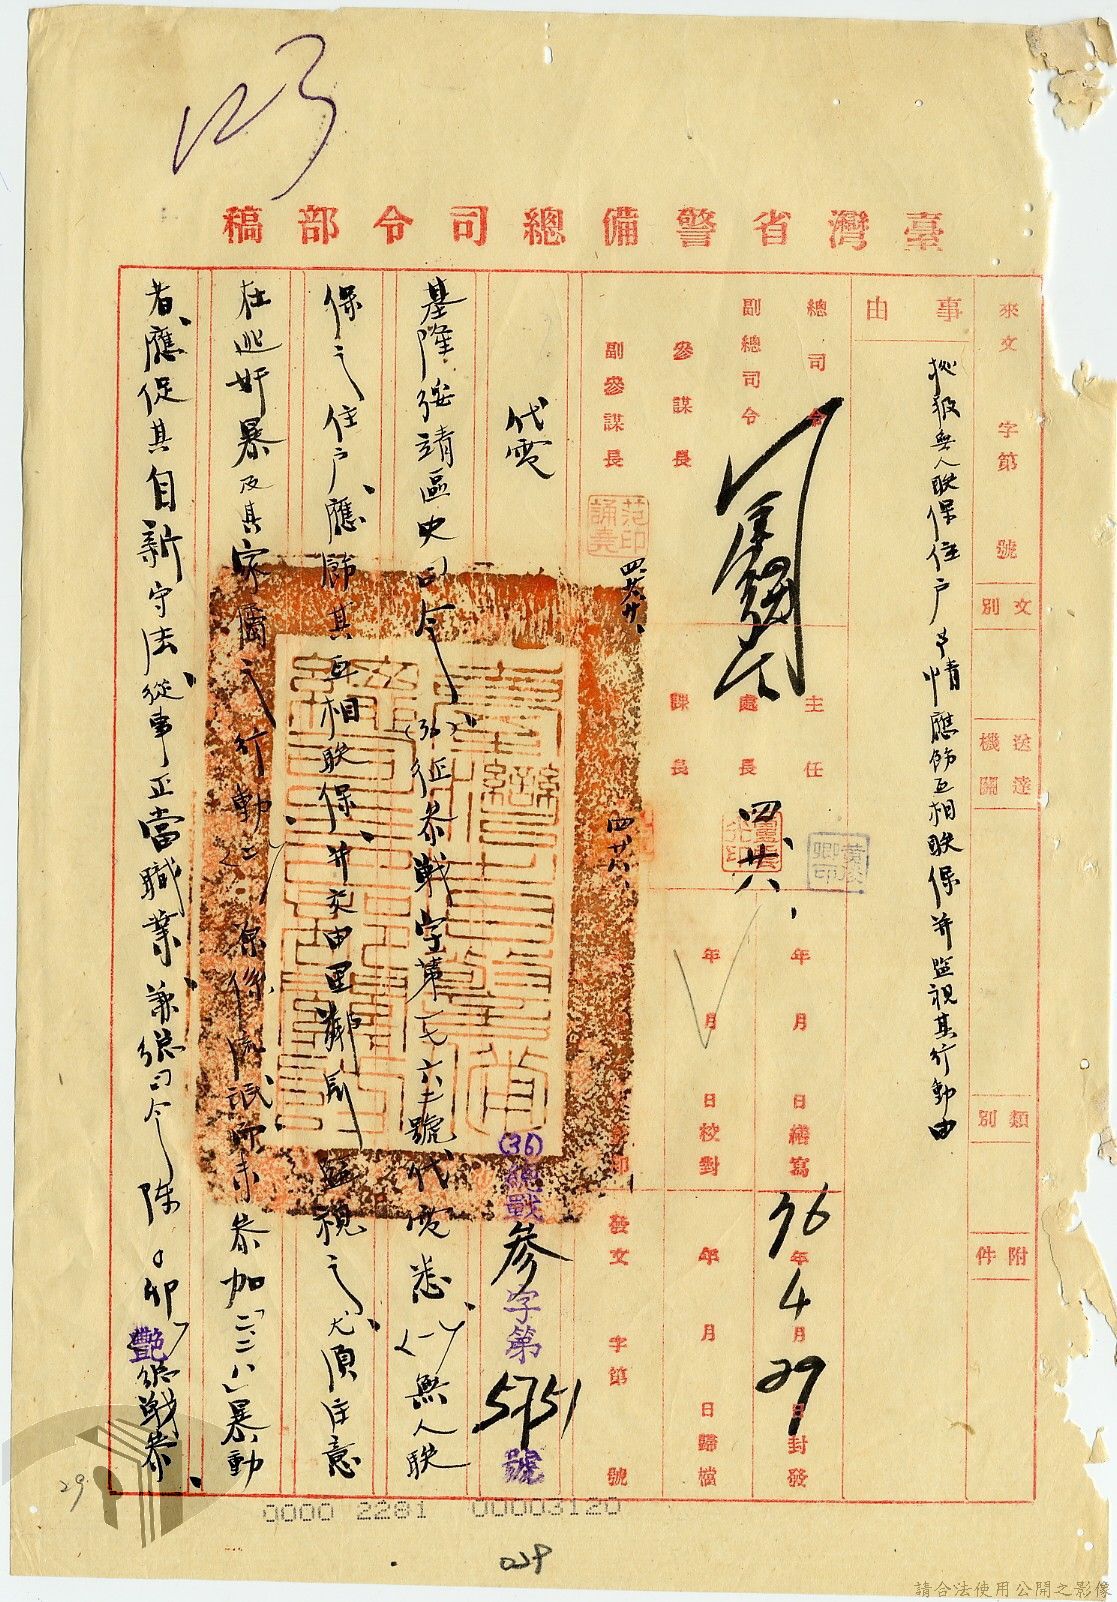 123
臺灣省警備總司令部稿
來文 字第 號
文別
送達機關
類別
附件
事由
據報無人聯保住戶申請應飭互相聯保并監視其行動由
總司令
副總司令
參謀長
副參謀長
主任
處長
課長
四、廿八、
年 月 日繕寫
年 月 日校對
36年4月29日封發
年 月 日歸檔
發文 字第 號
范誦堯印
四、廿八、
四、廿八、
代電
(36)總戰參字第5751號
基隆綏靖區史司令(36)征參戰字第 六 號代電悉(一)無人聯
保之住戶應飭其互相聯保、并交由里鄰長監視之、尤須注意
在逃奸暴及其家屬之行動(二) 而未參加「二二八」暴動
者、應促其自新守法、從事正當職業、兼總司令陳○卯艷總戰參、
29
0000 2281 00003120
029
請合法使用公開之影像